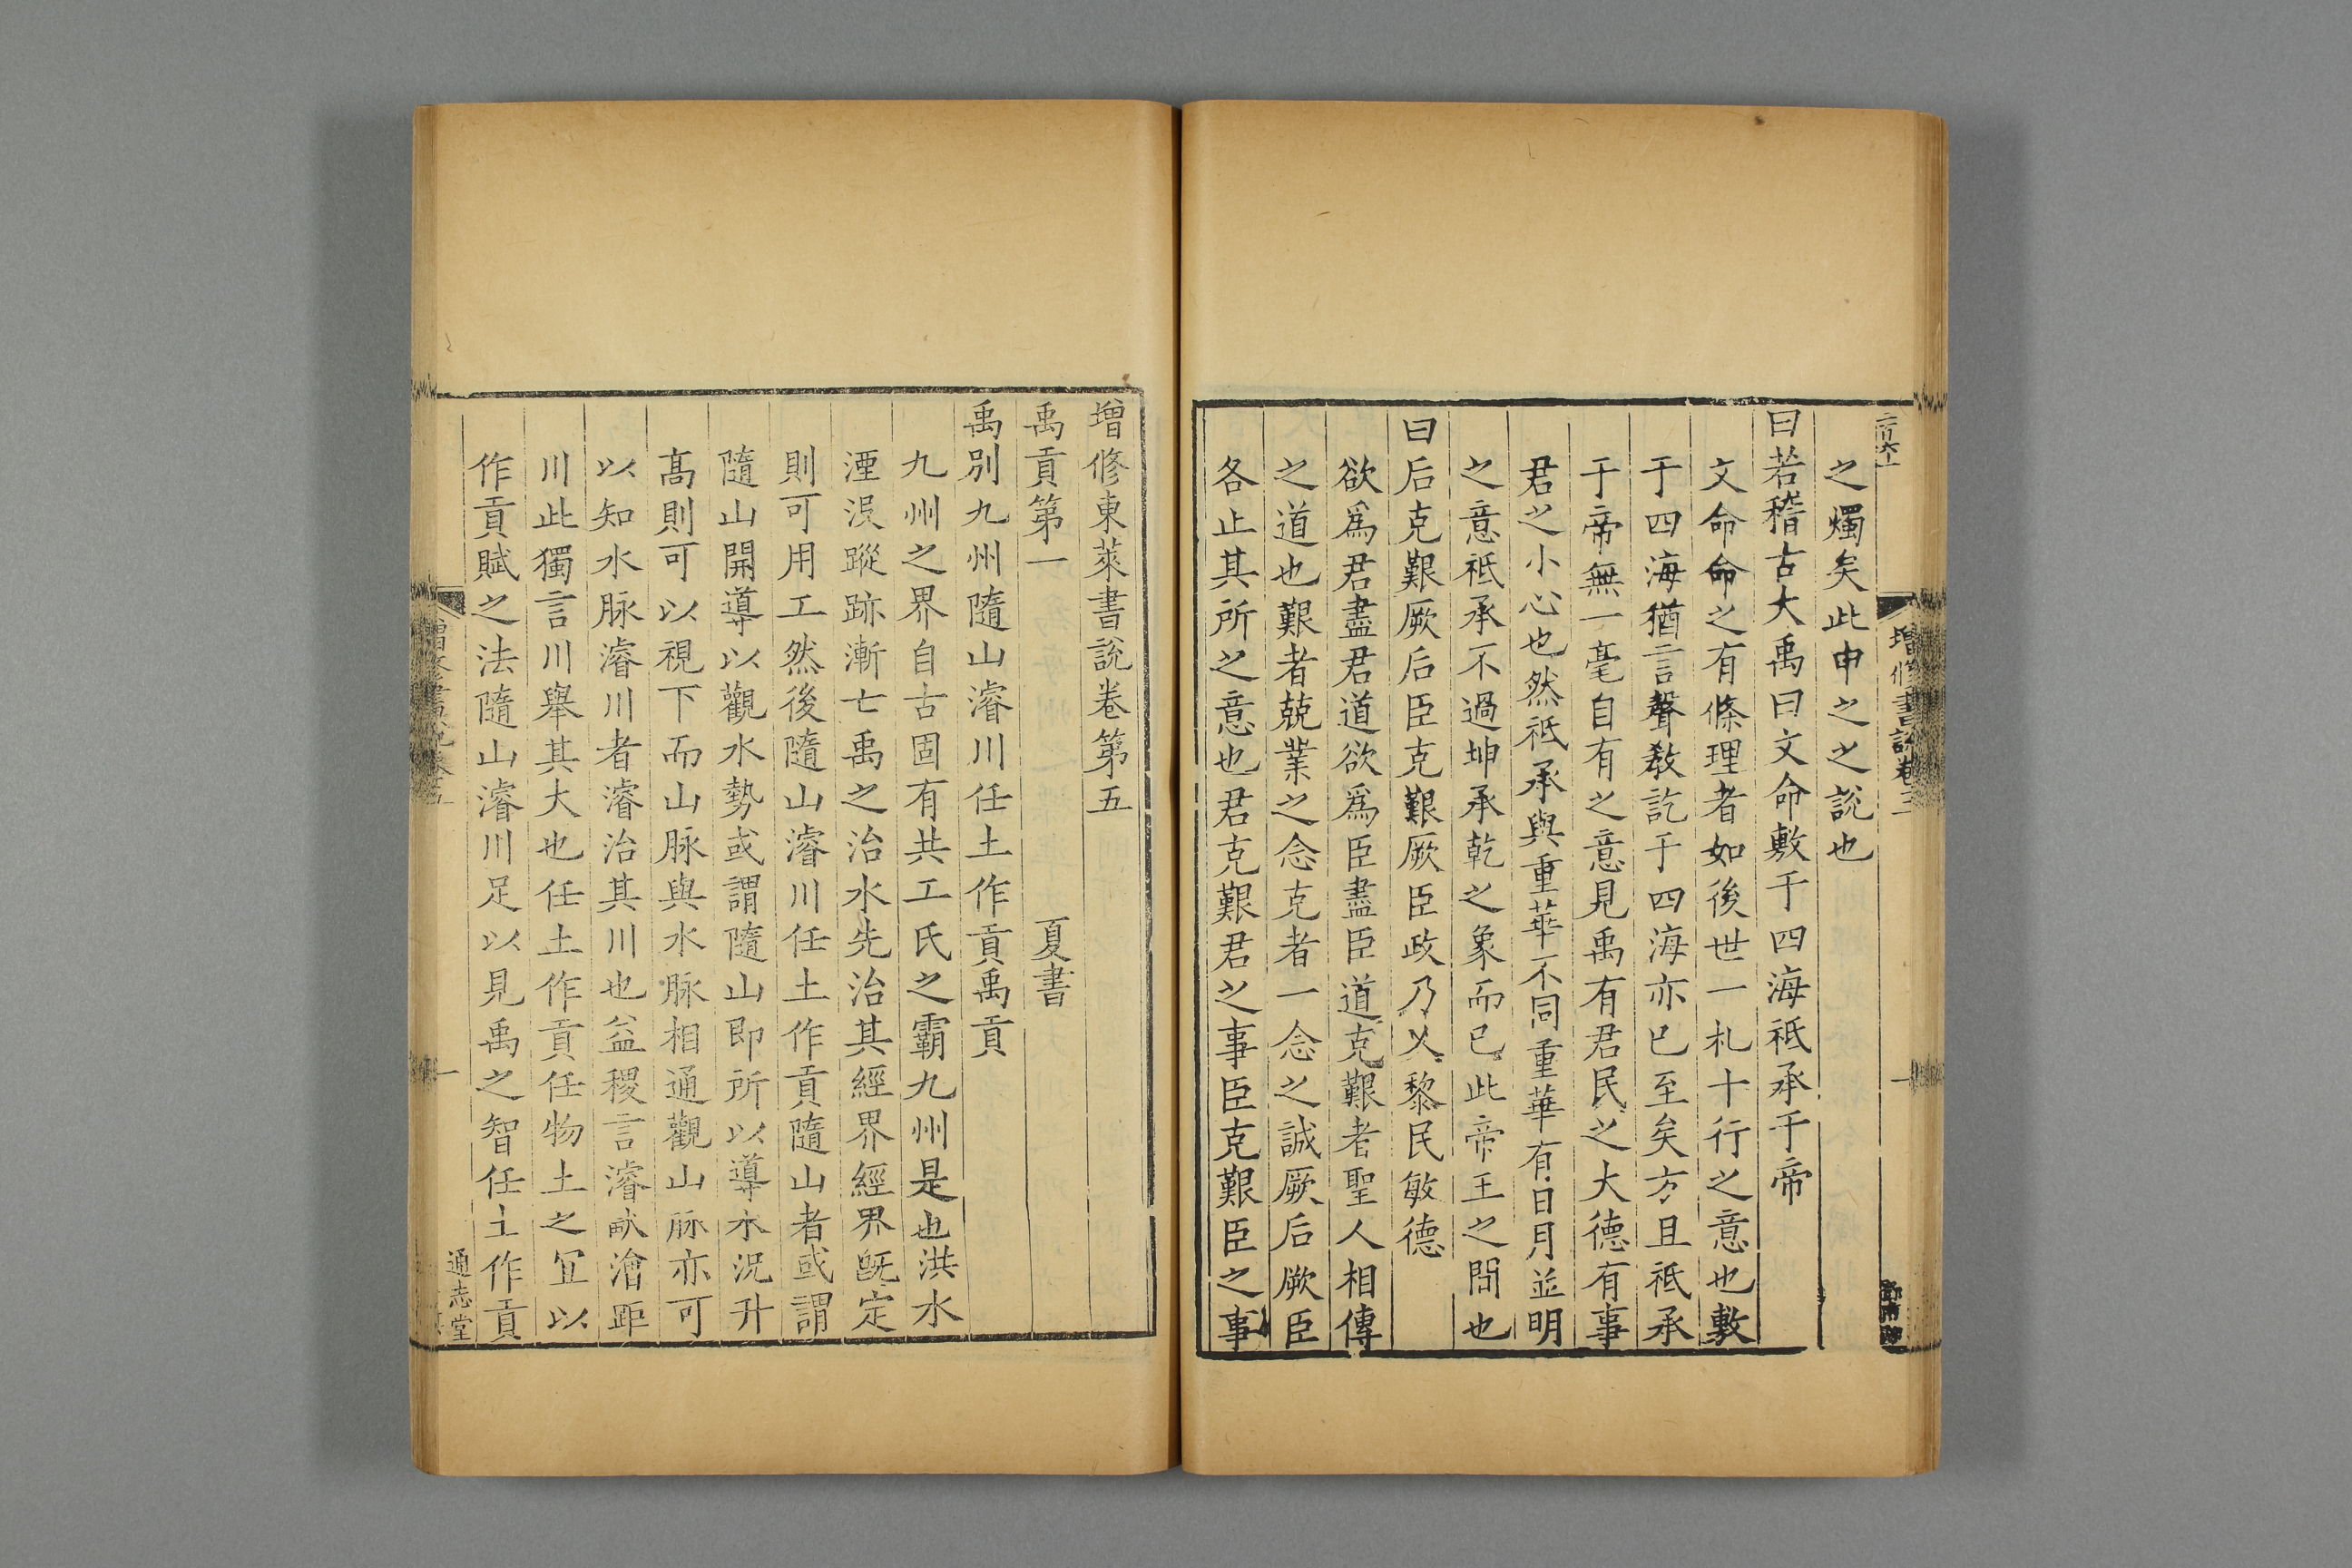 增修書說卷三
一
之燭矣此申之之說也
曰若稽古大禹曰文命敷于四海祗承于帝
文命命之有條理者如後世一札十行之意也敷
于四海猶言聲敎訖于四海亦已至矣方且祗承
于帝無一毫自有之意見禹有君民之大德有事
君之小心也然祗承與重華不同重華有日月並明
之意祗承不過坤承乾之象而已此帝王之間也
曰后克艱厥后臣克艱厥臣政乃乂黎民敏德
欲爲君盡君道欲爲臣盡臣道克艱者聖人相傳
之道也艱者兢業之念克者一念之誠厥后厥臣
各止其所之意也君克艱君之事臣克艱臣之事
增修東萊書說卷第五
禹貢第一 夏書
禹別九州隨山濬川任土作貢禹貢
九州之界自古固有共工氏之霸九州是也洪水
湮没蹤跡漸亡禹之治水先治其經界經界旣定
則可用工然後隨山濬川任土作貢隨山者或謂
隨山開導以觀水勢或謂隨山即所以導水況升
髙則可以視下而山脉與水脉相通觀山脉亦可
以知水脉濬川者濬治其川也益稷言濬畎澮距
川此獨言川舉其大也任土作貢任物土之宜以
作貢賦之法隨山濬川足以見禹之智任土作貢
增修書說卷五
一
通志堂